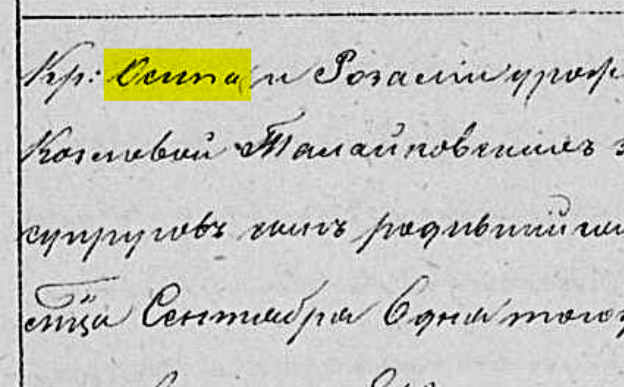 Кр: Осипа и Розалии урож
Козловой Талайковскихъ з
супруговъ сынъ родившийся
мца Сентября 6 дня того